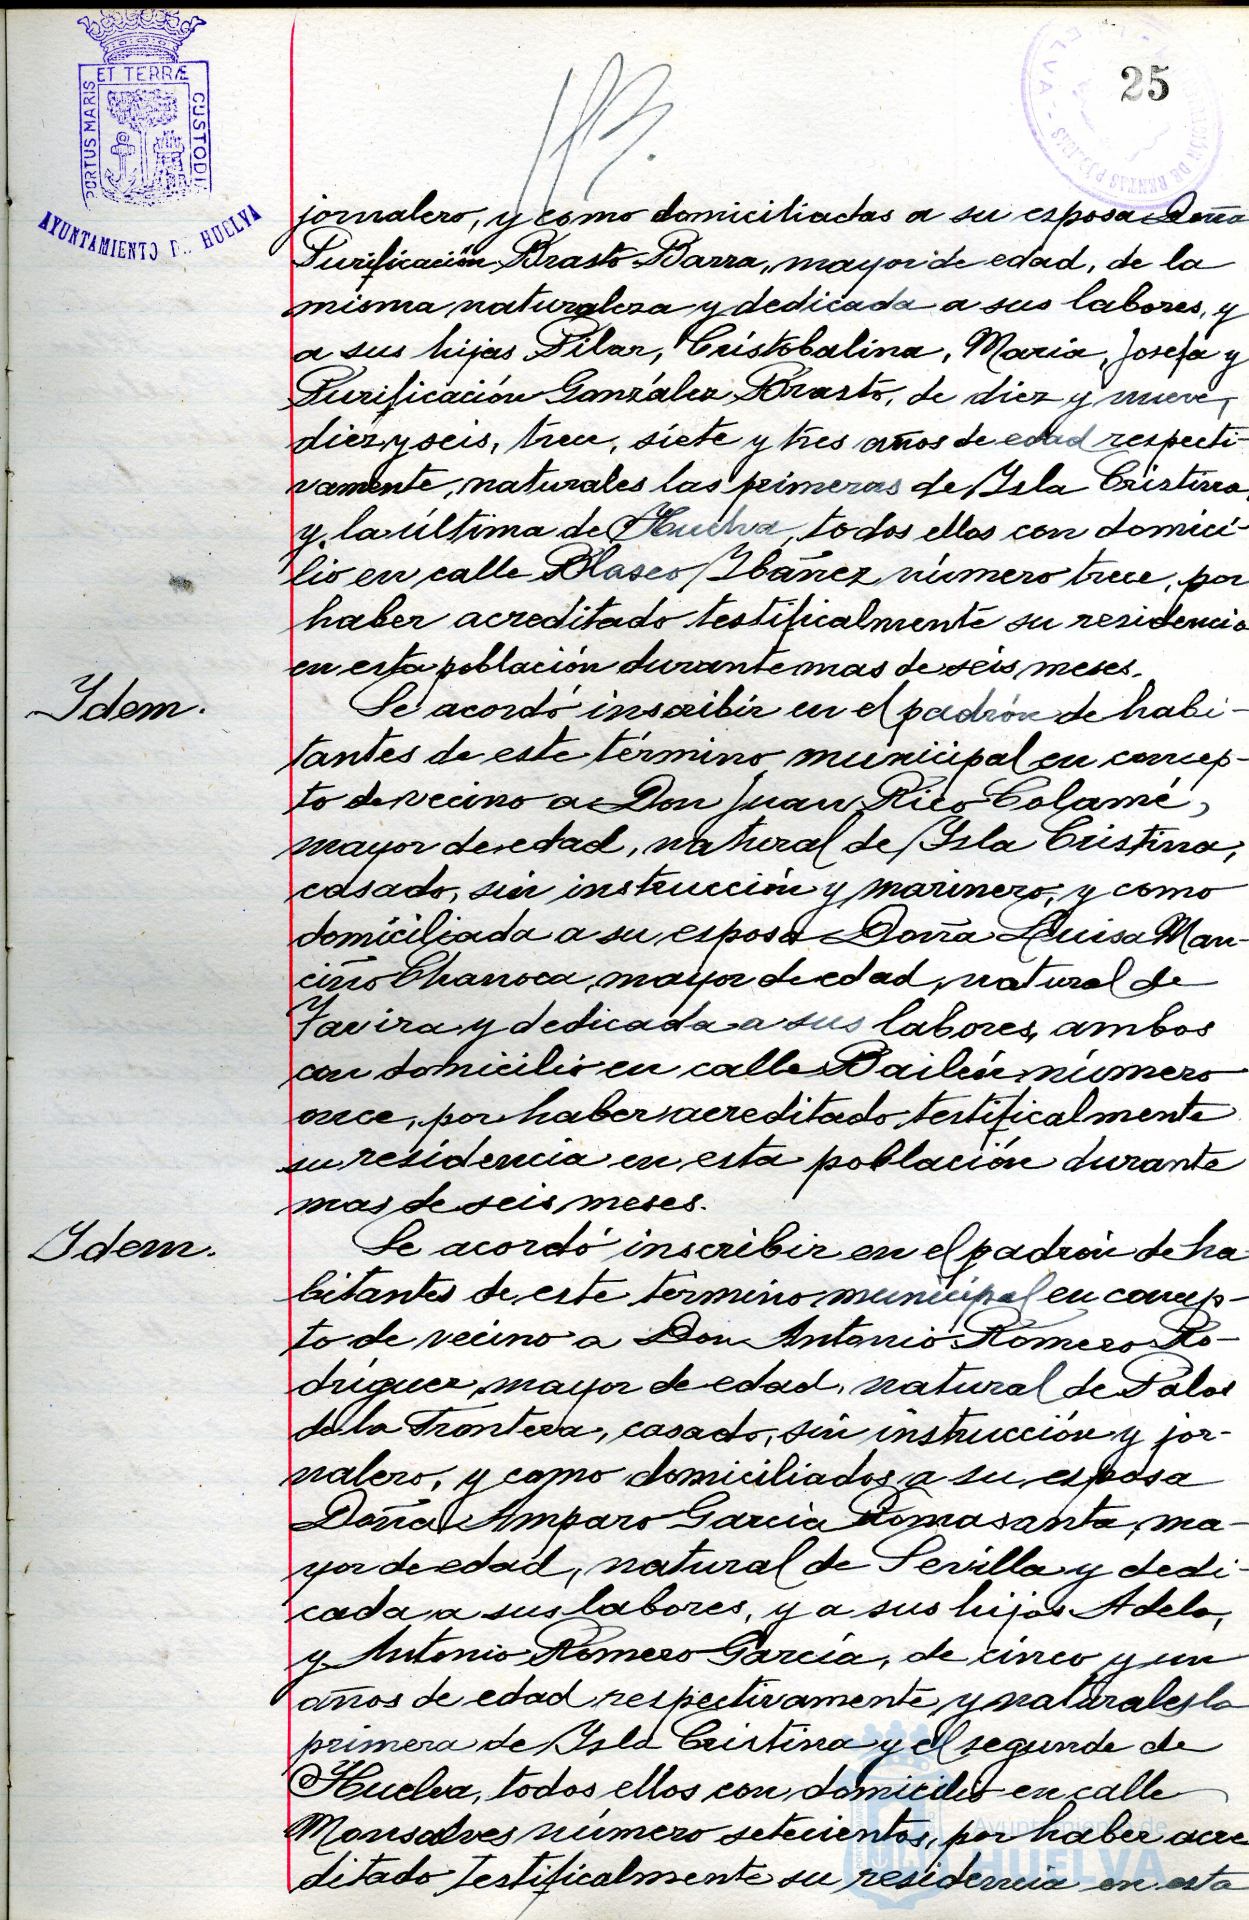 ET TERRÆ
PORTUS MARIS
CUSTODI
AYUNTAMIENTO DE HUELVA
25
jornalero, y como domiciliadas a su esposa Doña
Purificación Brasto Barra, mayor de edad, de la
misma naturaleza y dedicada a sus labores, y
a sus hijas Pilar, Cristobalina, Maria, Josefa y
Purificación González Brasto, de diez y nueve,
diez y seis, trece, siete y tres años de edad respecti-
vamente, naturales las primeras de Isla Cristina,
y la última de Huelva, todos ellos con domici-
lio en calle Blasco Ibáñez número trece, por
haber acreditado testificalmente su residencia
en esta población durante mas de seis meses.
Idem.
Se acordó inscribir en el padrón de habi-
tantes de este término municipal en concep-
to de vecino a Don Juan Rico Colamé,
mayor de edad, natural de Isla Cristina,
casado, sin instrucción y marinero, y como
domiciliada a su esposa Doña Luisa Man-
ciño Chanoca, mayor de edad, natural de
Tavira y dedicada a sus labores, ambos
con domicilio en calle Bailén número
once, por haber acreditado testificalmente
su residencia en esta población durante
mas de seis meses.
Idem.
Se acordó inscribir en el padrón de ha
bitantes de este término municipal en concep-
to de vecino a Don Antonio Romero Ro-
dríguez, mayor de edad, natural de Palos
de la Frontera, casado, sin instrucción y jor-
nalero, y como domiciliados a su esposa
Doña Amparo García Romasanta, ma-
yor de edad, natural de Sevilla y dedi-
cada a sus labores, y a sus hijos Adela,
y Antonio Romero García, de cinco y un
años de edad respectivamente y naturales la
primera de Isla Cristina y el segundo de
Huelva, todos ellos con domicilio en calle
Monsalves número setecientos, por haber acre
ditado testificalmente su residencia en esta
Ayuntamiento de
HUELVA